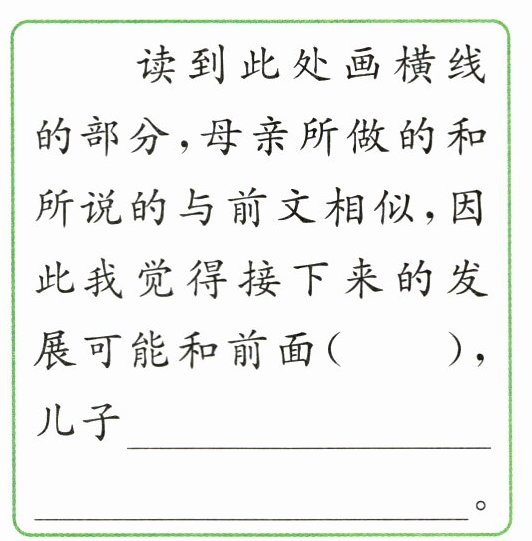 读到此处画横线
的部分，母亲所做的和
所说的与前文相似，因
此我觉得接下来的发
展可能和前面（　　），
儿子
。